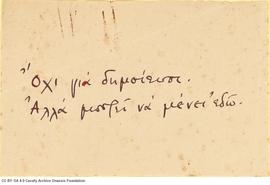 Ὄχι γιὰ δημοσίευσι.
Ἀλλὰ μπορεῖ νὰ μένει ἐδῶ.
CC-BY· GA 4.0 Cavafy Archive Onassis Foundation